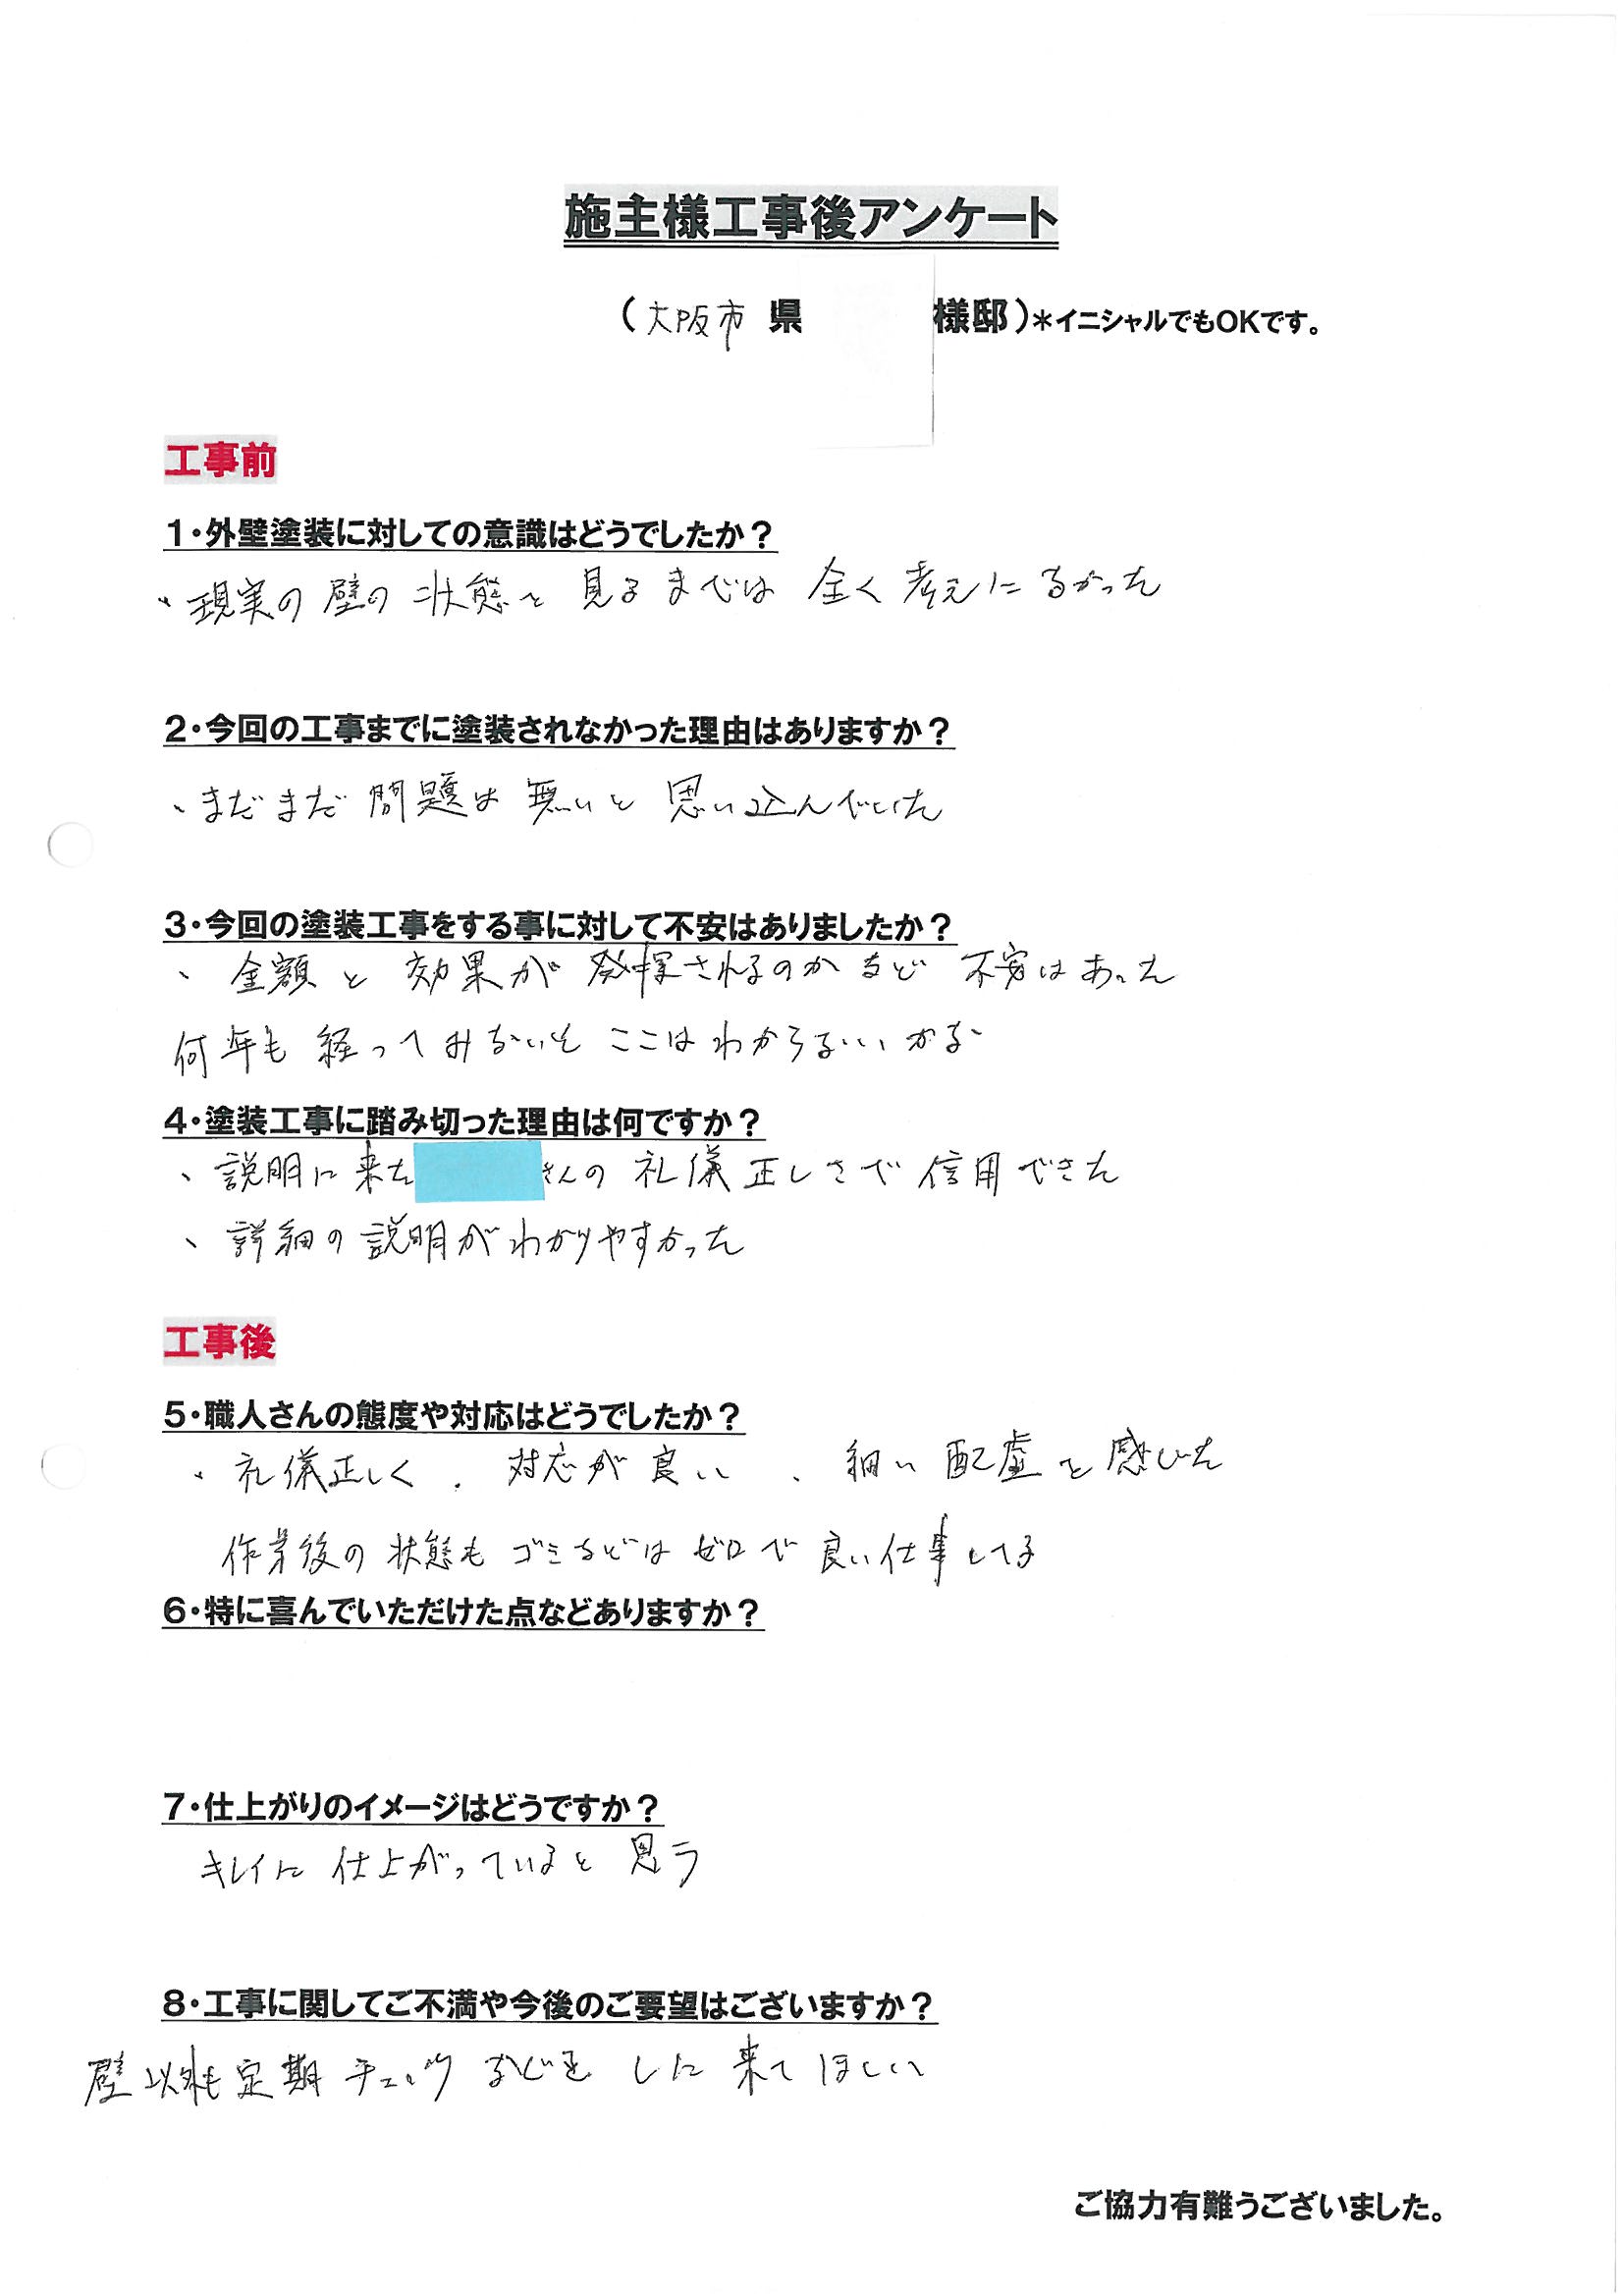 施主様工事後アンケート
(大阪市 県 様邸)＊イニシャルでもOKです。
工事前
1・外壁塗装に対しての意識はどうでしたか？
・現実の壁の状態を見るまでは全く考えになかった
2・今回の工事までに塗装されなかった理由はありますか？
、まだまだ問題は無いと思い込んでいた
3・今回の塗装工事をする事に対して不安はありましたか？
、金額と効果が発揮されるのかなど不安はあった
何年も経ってみないとここはわからない、かな
4・塗装工事に踏み切った理由は何ですか？
、説明に来た さんの礼儀正しさで信用できた
、詳細の説明がわかりやすかった
工事後
5・職人さんの態度や対応はどうでしたか？
・礼儀正しく、対応が良い、細い配慮を感じた
作業後の状態もゴミなどはゼロで良い仕事してる
6・特に喜んでいただけた点などありますか？
7・仕上がりのイメージはどうですか？
キレイに仕上がっていると思う
8・工事に関してご不満や今後のご要望はございますか？
壁以外も定期チェックなどをしに来てほしい
ご協力有難うございました。